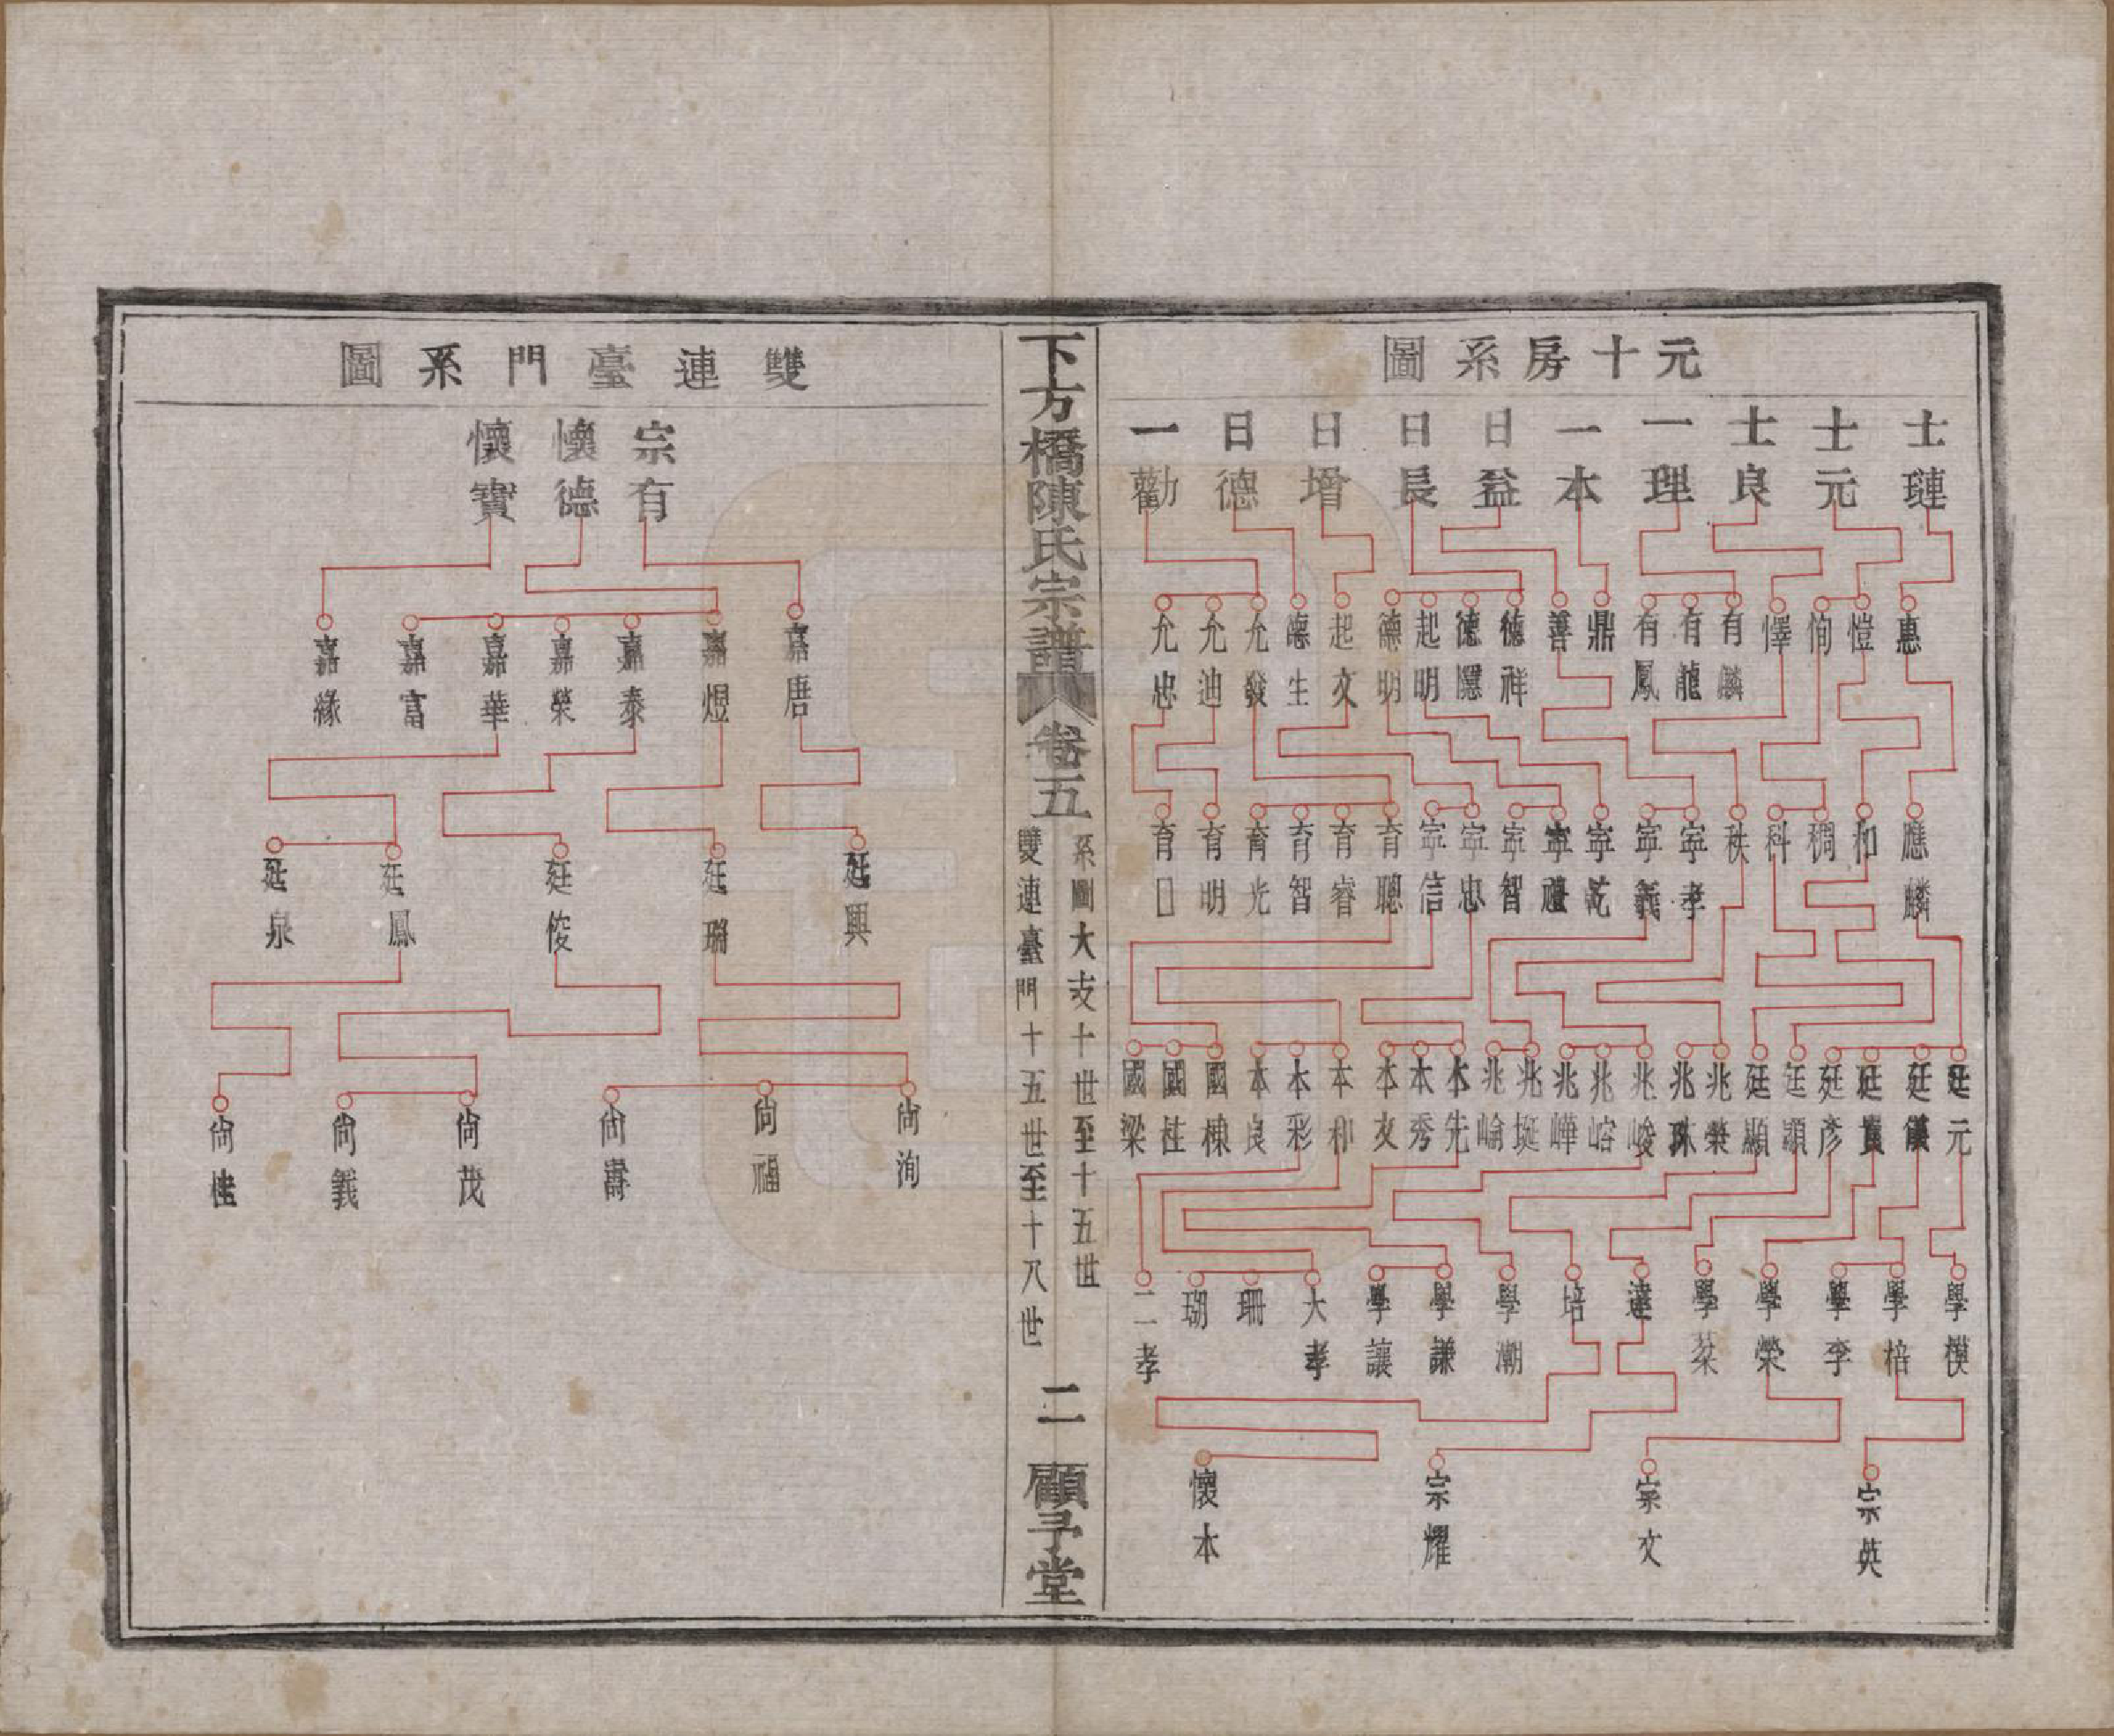 元十房系圖
士璉 士元 士良 一理 一本 日益 日長 日增 日德 一勸
惠 愷 恂 懌 有麟 有龍 有鳳 鼎 善 德祥 德隱 起明 德明 起文 德生 允發 允迪 允忠
應麟 和 稠 科 秩 寧孝 寧義 寧乾 寧禮 寧智 寧忠 寧信 育聰 育睿 育智 育光 育明 育□
廷元 廷儀 廷賓 廷彥 廷潁 廷顯 兆榮 兆珠 兆峻 兆嵱 兆嶂 兆埏 兆崘 本先 本秀 本友 本和 本彩 本良 國棟 國柱 國梁
學模 學棓 學李 學榮 學棻 達 培 學潮 學謙 學讓 大孝 珊 瑚 二孝
宗英 宗文 宗耀 懷本
下方橋陳氏宗譜 卷五
系圖大支十世至十五世
雙連臺門十五世至十八世
二
顧予堂
雙連臺門系圖
宗有 懷德 懷寶
嘉唐 嘉煜 嘉泰 嘉榮 嘉華 嘉富 嘉緣
廷興 廷瑞 廷俊 廷鳳 廷泉
尚洵 尚福 尚壽 尚茂 尚義 尚桂